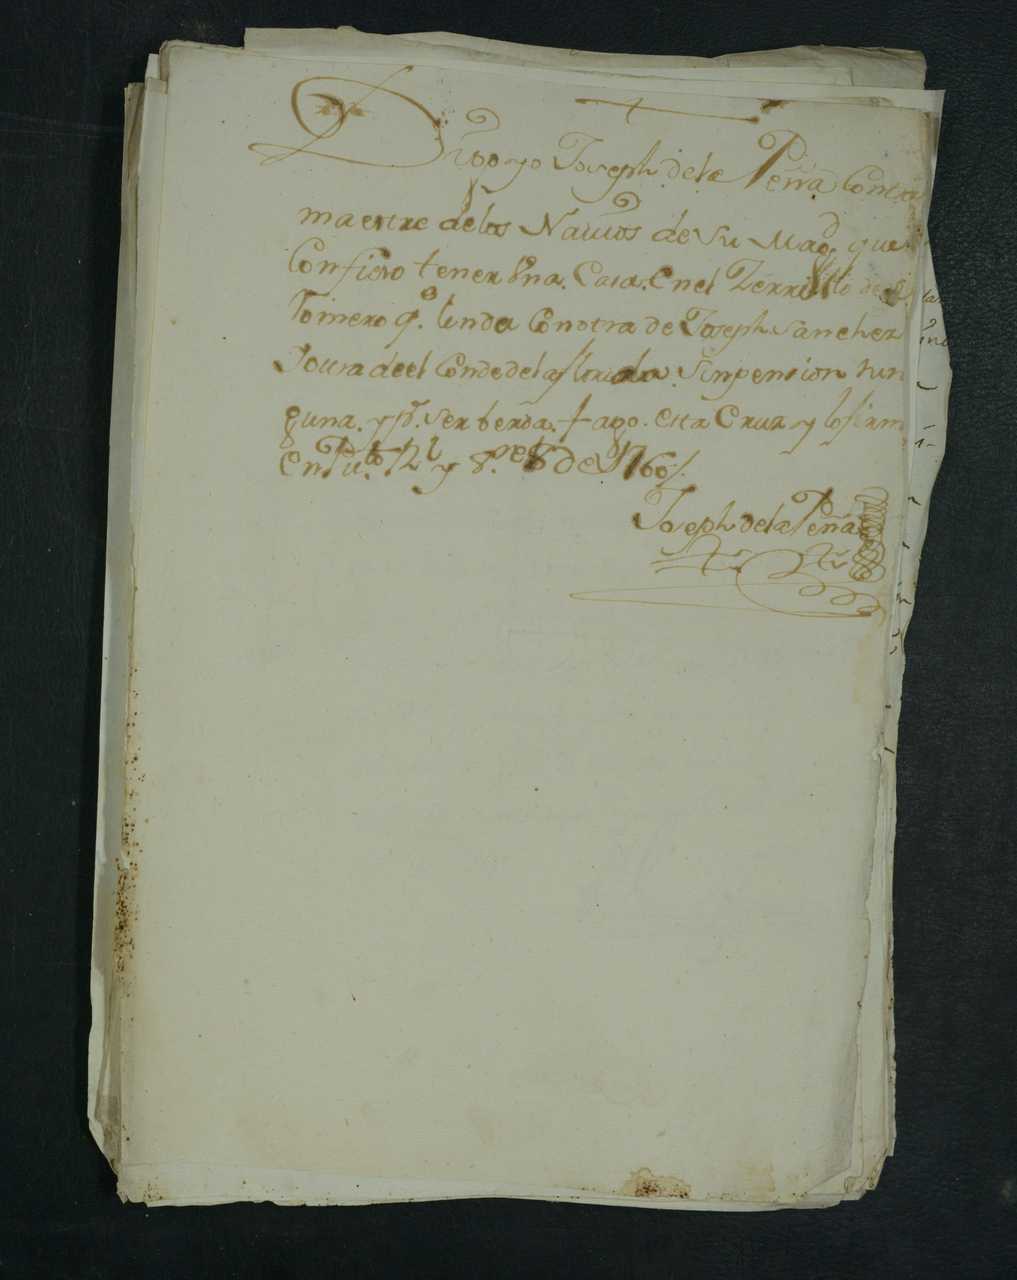 Digo yo Joseph de la Peña Contra
maestre de los Nauios de Su Magd. que
Confieso tener Vna. Casa. Enel Zerrillo de
Tomero q. linda Conotra de Joseph Sanchez
Jotra deel Conde dela florida. Sinpension nin
guna. y pr. ser berda. fago. esta Cruz y lo firm
en 12 y 8.re de 1760
Joseph dela Peña